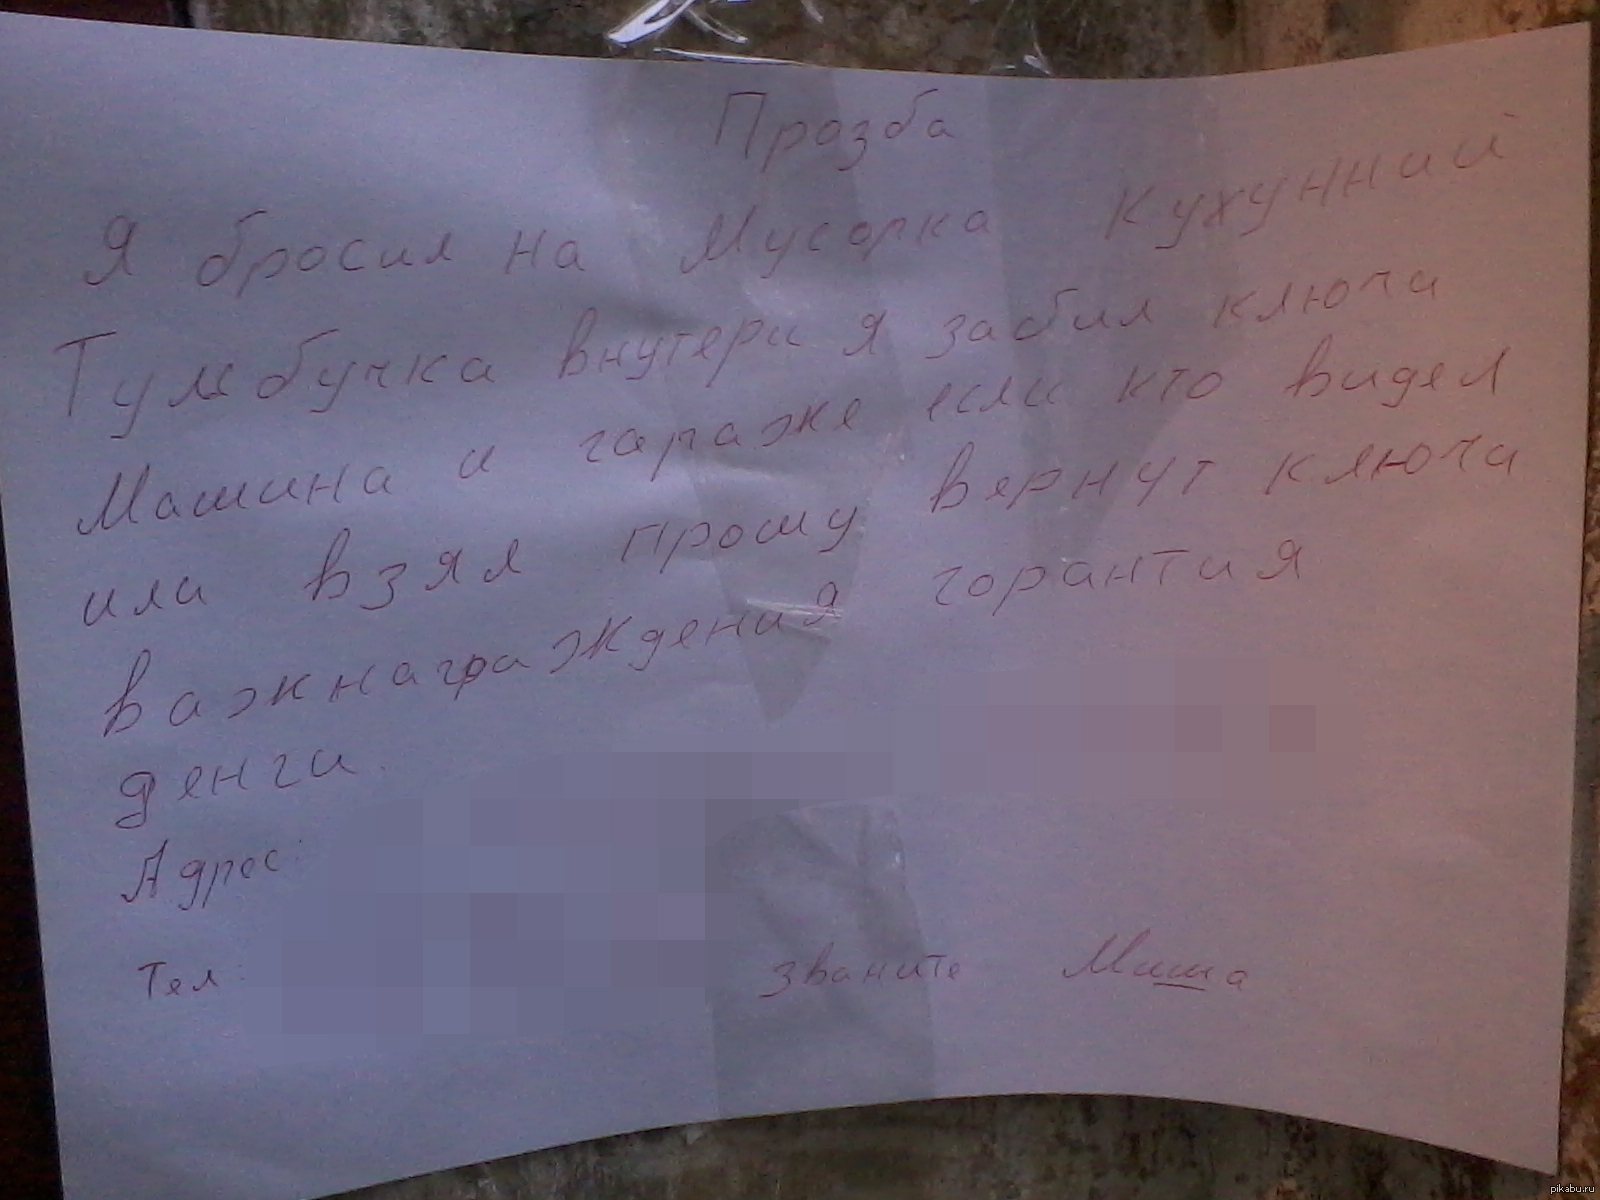 Прозба
Я бросил на Мусорка Кухунний
Тумбучка внутери я забил ключи
Машина и гараже если кто видел
или взял прошу вернут ключи
важнаграждения горантия
денги.
Адрес:
Тел: званите Миша
pikabu.ru